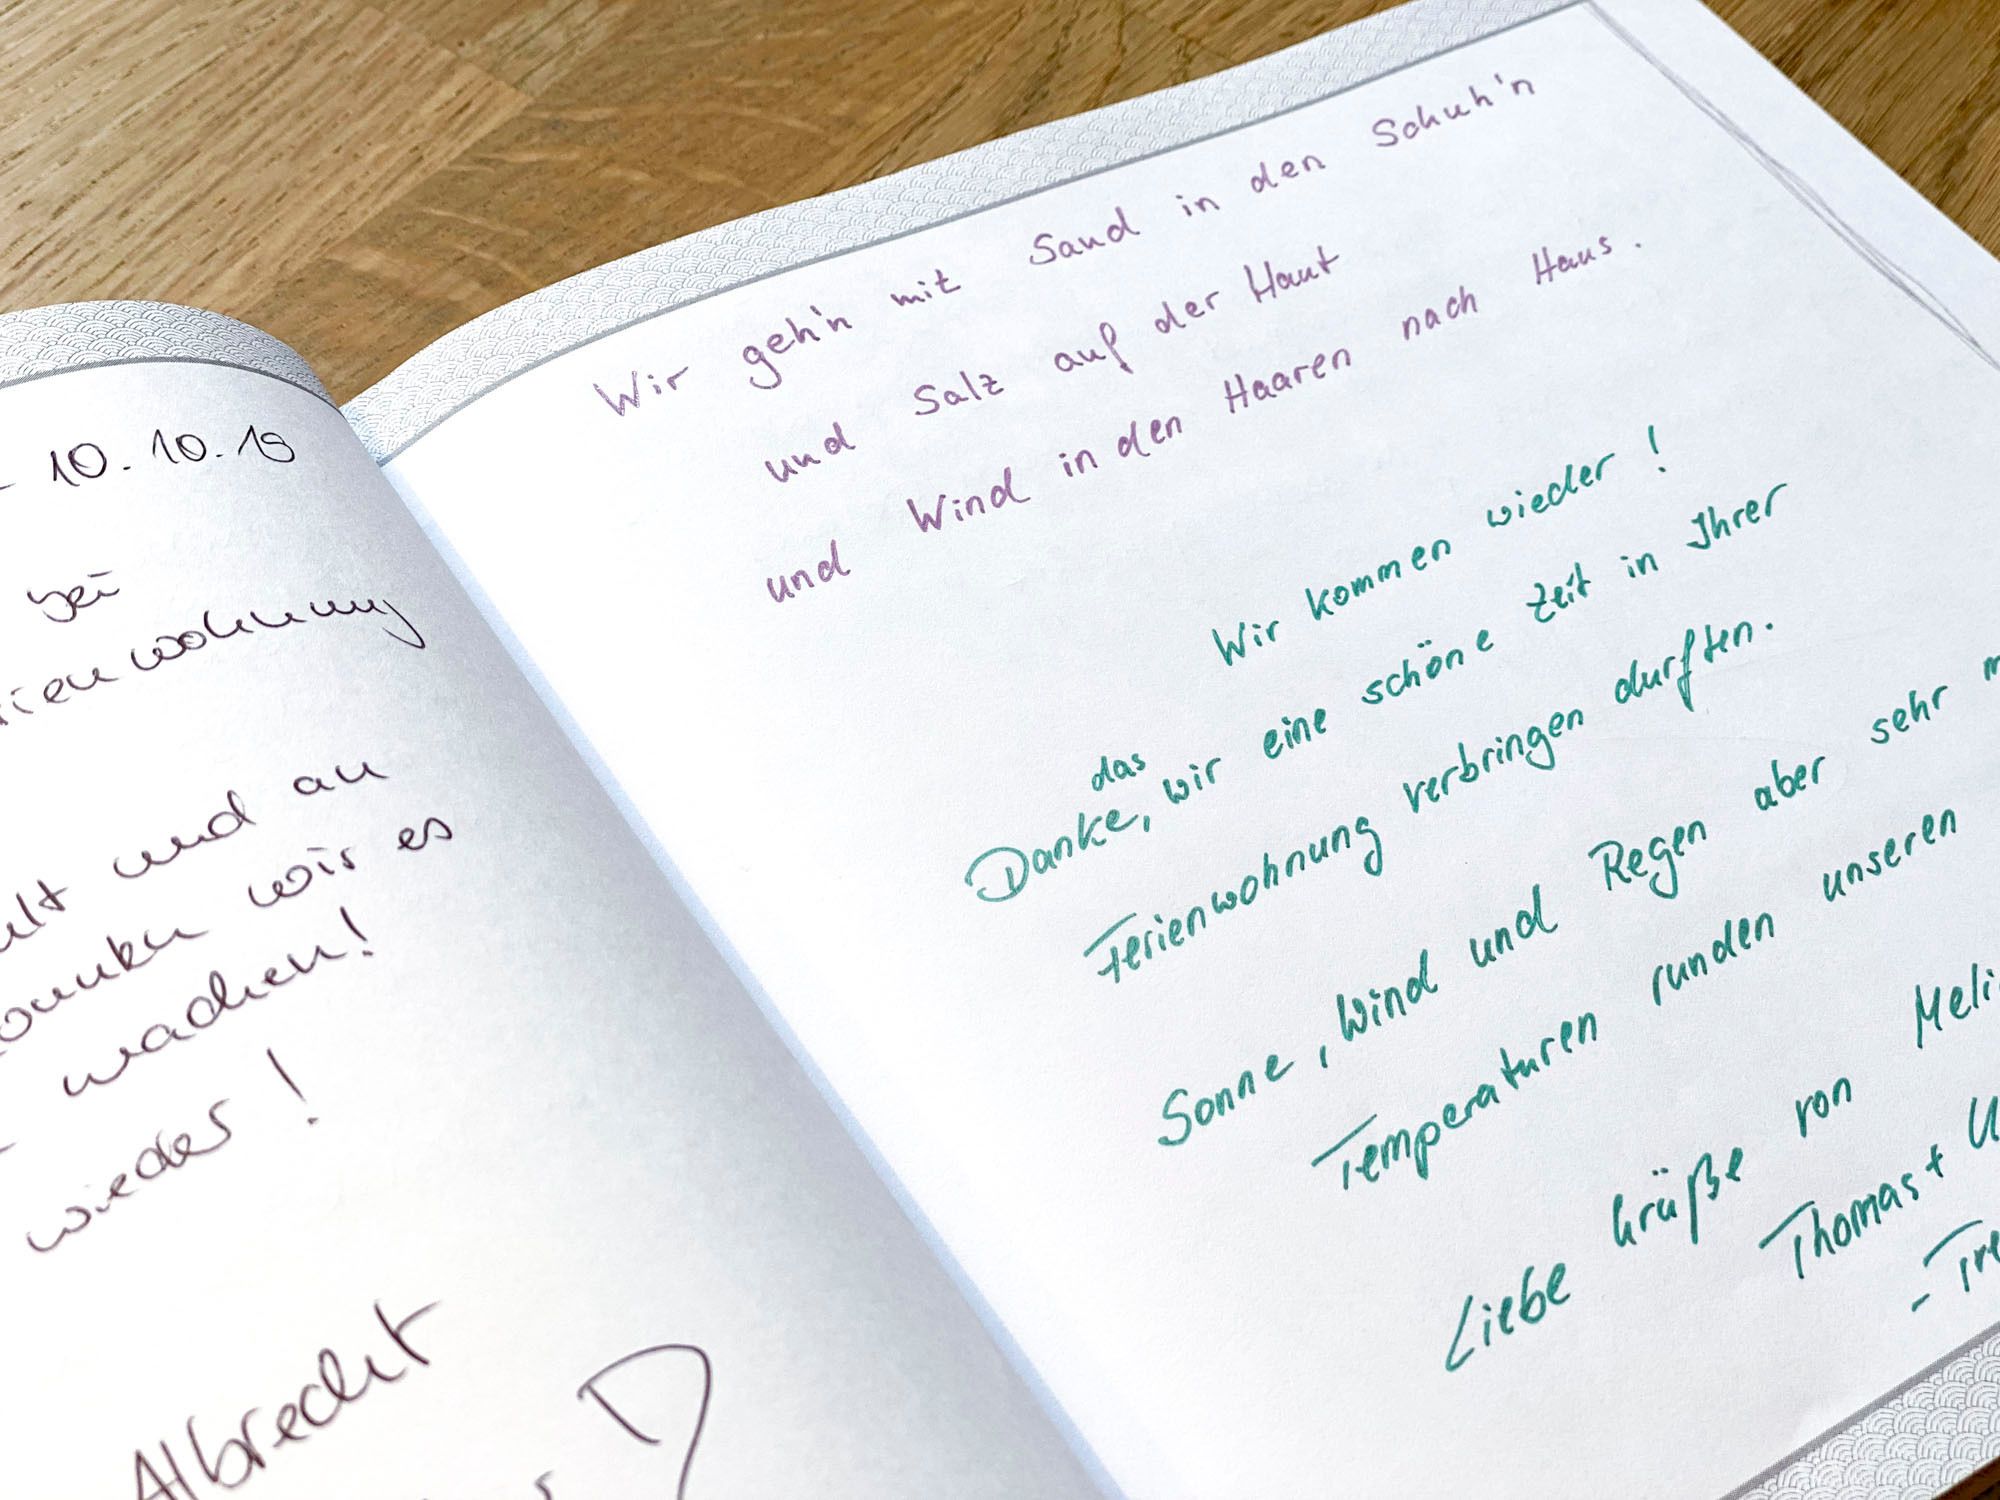 10.10.19
bei
wohnung
und an
wir es
machen!
wieder!
Albrecht
Wir geh'n mit Sand in den Schuh'n
und Salz auf der Haut
und Wind in den Haaren nach Haus.
Wir kommen wieder!
das
Danke, wir eine schöne Zeit in Ihrer
Ferienwohnung verbringen durften.
Sonne, Wind und Regen aber sehr
Temperaturen runden unseren
Liebe Grüße von Meli
Thomas + U
- Tre